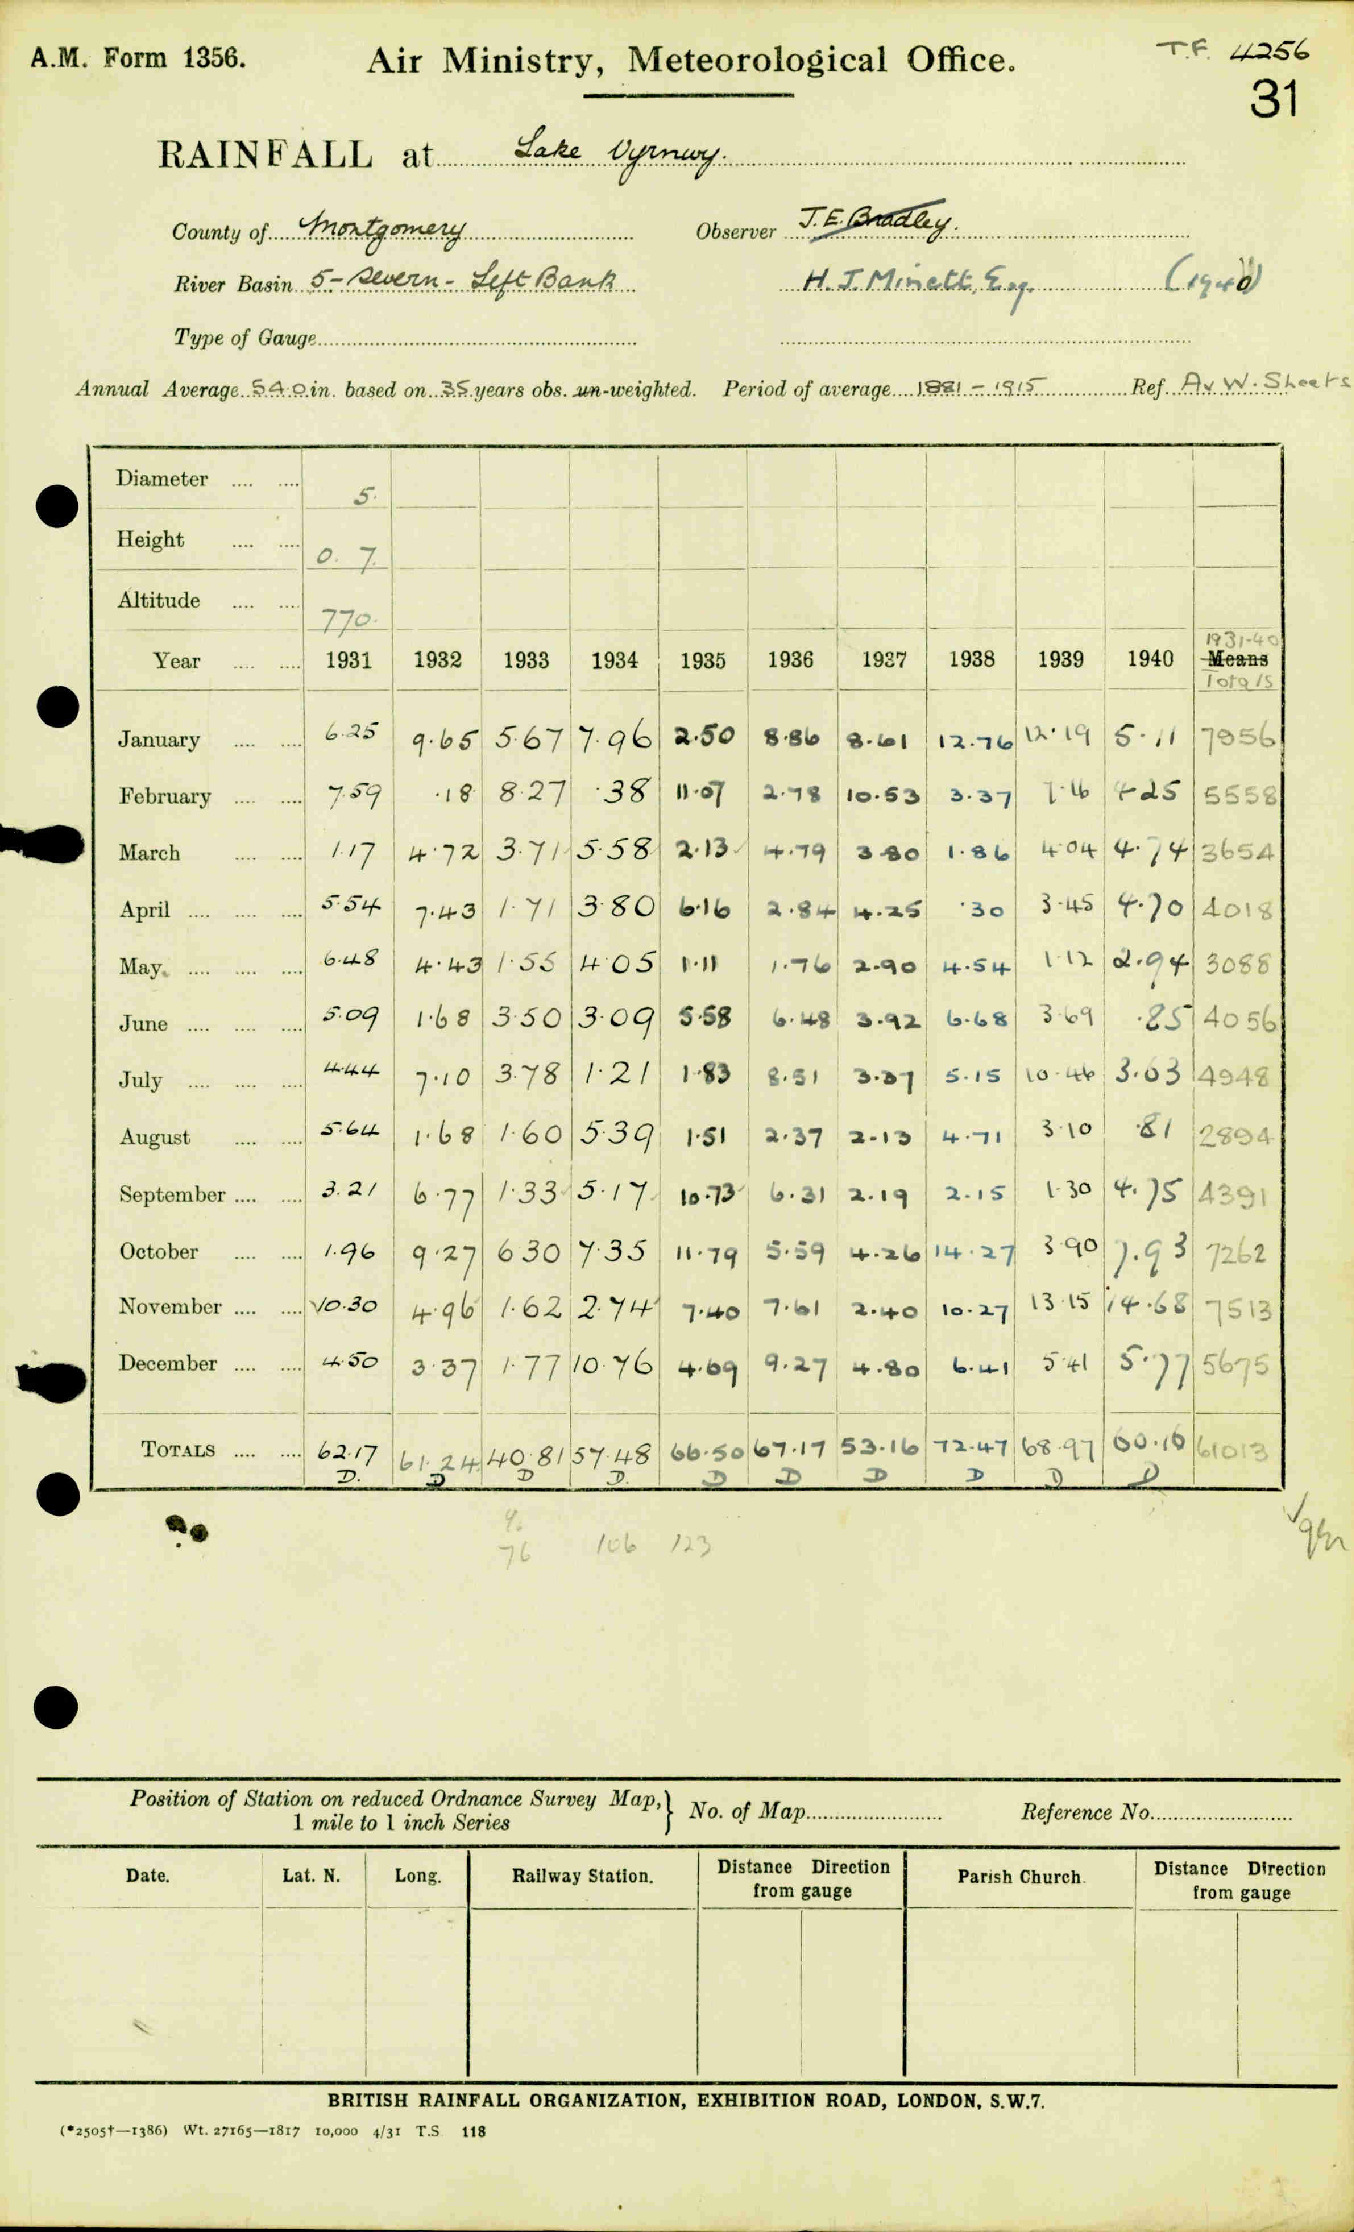 A.M. Form 1356. Air Ministry, Meteorological Office. T.F. 4256
31
RAINFALL at Lake Vyrnwy.
County of Montgomery Observer J.E. Bradley.
River Basin 5-Severn-Left Bank H. J. Minett, Esq. (1940)
Type of Gauge
Annual Average 54.0 in. based on 35 years obs. un-weighted. Period of average 1881-1915 Ref. Av W. Sheets
Diameter 5.
Height 0. 7.
Altitude 770.
1931-40
Year 1931 1932 1933 1934 1935 1936 1937 1938 1939 1940 Means
Totals
January 6.25 9.65 5.67 7.96 2.50 8.86 8.61 12.76 12.19 5.11 7956
February 7.59 .18 8.27 .38 11.07 2.78 10.53 3.37 7.16 4.25 5558
March 1.17 4.72 3.71 5.58 2.13 4.79 3.80 1.86 4.04 4.74 3654
April 5.54 7.43 1.71 3.80 6.16 2.84 4.25 .30 3.45 4.70 4018
May 6.48 4.43 1.55 4.05 1.11 1.76 2.90 4.54 1.12 2.94 3088
June 5.09 1.68 3.50 3.09 5.58 6.48 3.92 6.68 3.69 .85 4056
July 4.44 7.10 3.78 1.21 1.83 8.51 3.37 5.15 10.46 3.63 4948
August 5.64 1.68 1.60 5.39 1.51 2.37 2.13 4.71 3.10 .81 2894
September 3.21 6.77 1.33 5.17 10.73 6.31 2.19 2.15 1.30 4.75 4391
October 1.96 9.27 6.30 7.35 11.79 5.59 4.26 14.27 3.90 7.93 7262
November 10.30 4.96 1.62 2.74 7.40 7.61 2.40 10.27 13.15 14.68 7513
December 4.50 3.37 1.77 10.76 4.69 9.27 4.80 6.41 5.41 5.77 5675
TOTALS 62.17 61.24 40.81 57.48 66.50 67.17 53.16 72.47 68.97 60.16 61013
D. D D D. D D D D D D
%
76 106 123
Position of Station on reduced Ordnance Survey Map, 1 mile to 1 inch Series } No. of Map Reference No.
Date. Lat. N. Long. Railway Station. Distance Direction from gauge Parish Church. Distance Direction from gauge
BRITISH RAINFALL ORGANIZATION, EXHIBITION ROAD, LONDON, S.W.7.
(*2505†—1386) Wt. 27165—1817 10,000 4/31 T.S. 118